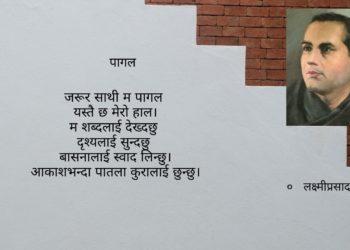 पागल
जरूर साथी म पागल
यस्तै छ मेरो हाल।
म शब्दलाई देख्दछु
दृश्यलाई सुन्दछु
बासनालाई स्वाद लिन्छु।
आकाशभन्दा पातला कुरालाई छुन्छु।
० लक्ष्मीप्रसाद